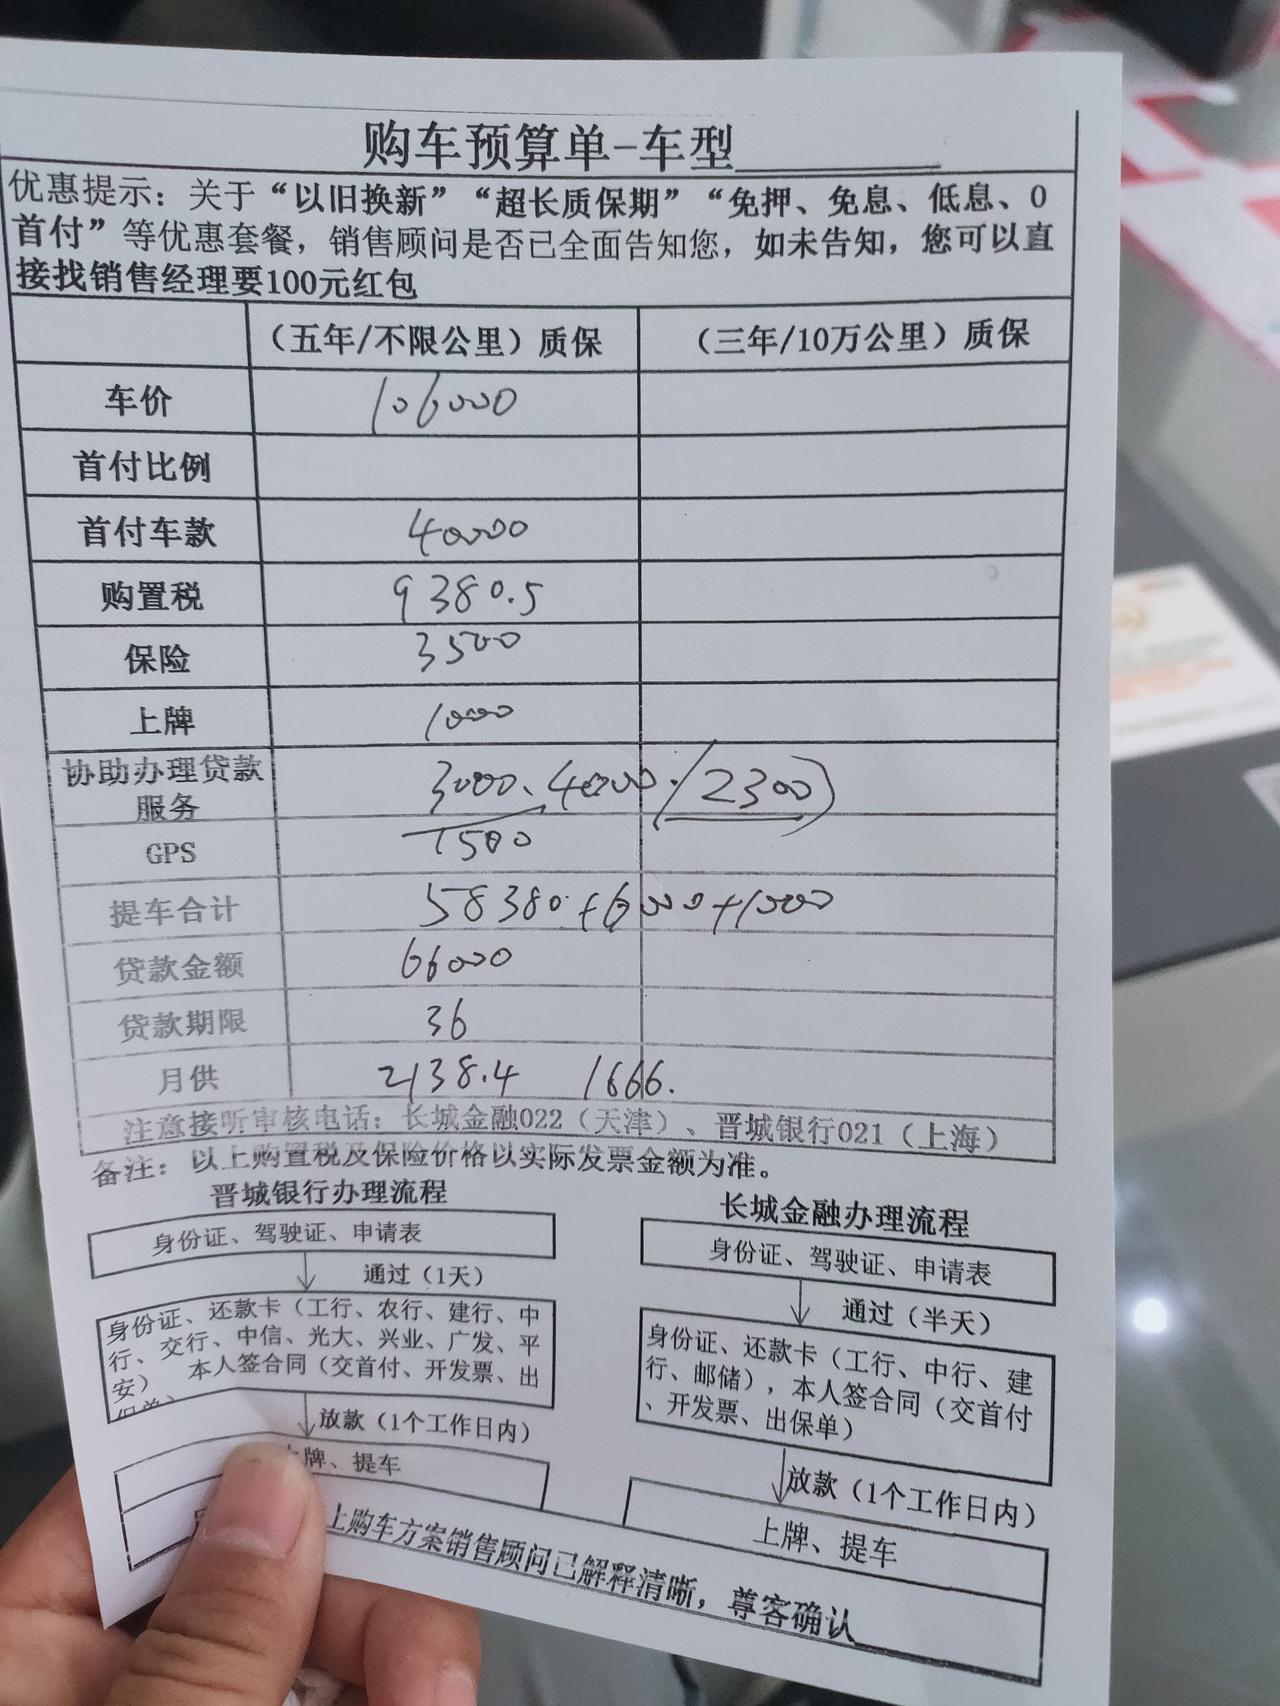 购车预算单-车型
优惠提示：关于“以旧换新”“超长质保期”“免押、免息、低息、0
首付”等优惠套餐，销售顾问是否已全面告知您，如未告知，您可以直
接找销售经理要100元红包
（五年/不限公里）质保 （三年/10万公里）质保
车价 106000
首付比例
首付车款 40000
购置税 9380.5
保险 3500
上牌 1000
协助办理贷款
服务 3000、4000.(2300)
GPS 1500
提车合计 58380+6000+1000
贷款金额 66000
贷款期限 36
月供 2138.4 1666.
注意接听审核电话：长城金融022（天津）、晋城银行021（上海）
备注：以上购置税及保险价格以实际发票金额为准。
晋城银行办理流程
身份证、驾驶证、申请表
通过（1天）
身份证、还款卡（工行、农行、建行、中
行、交行、中信、光大、兴业、广发、平
安） 本人签合同（交首付、开发票、出
放款（1个工作日内）
上牌、提车
长城金融办理流程
身份证、驾驶证、申请表
通过（半天）
身份证、还款卡（工行、中行、建
行、邮储），本人签合同（交首付
、开发票、出保单）
放款（1个工作日内）
上牌、提车
上购车方案销售顾问已解释清晰，尊客确认